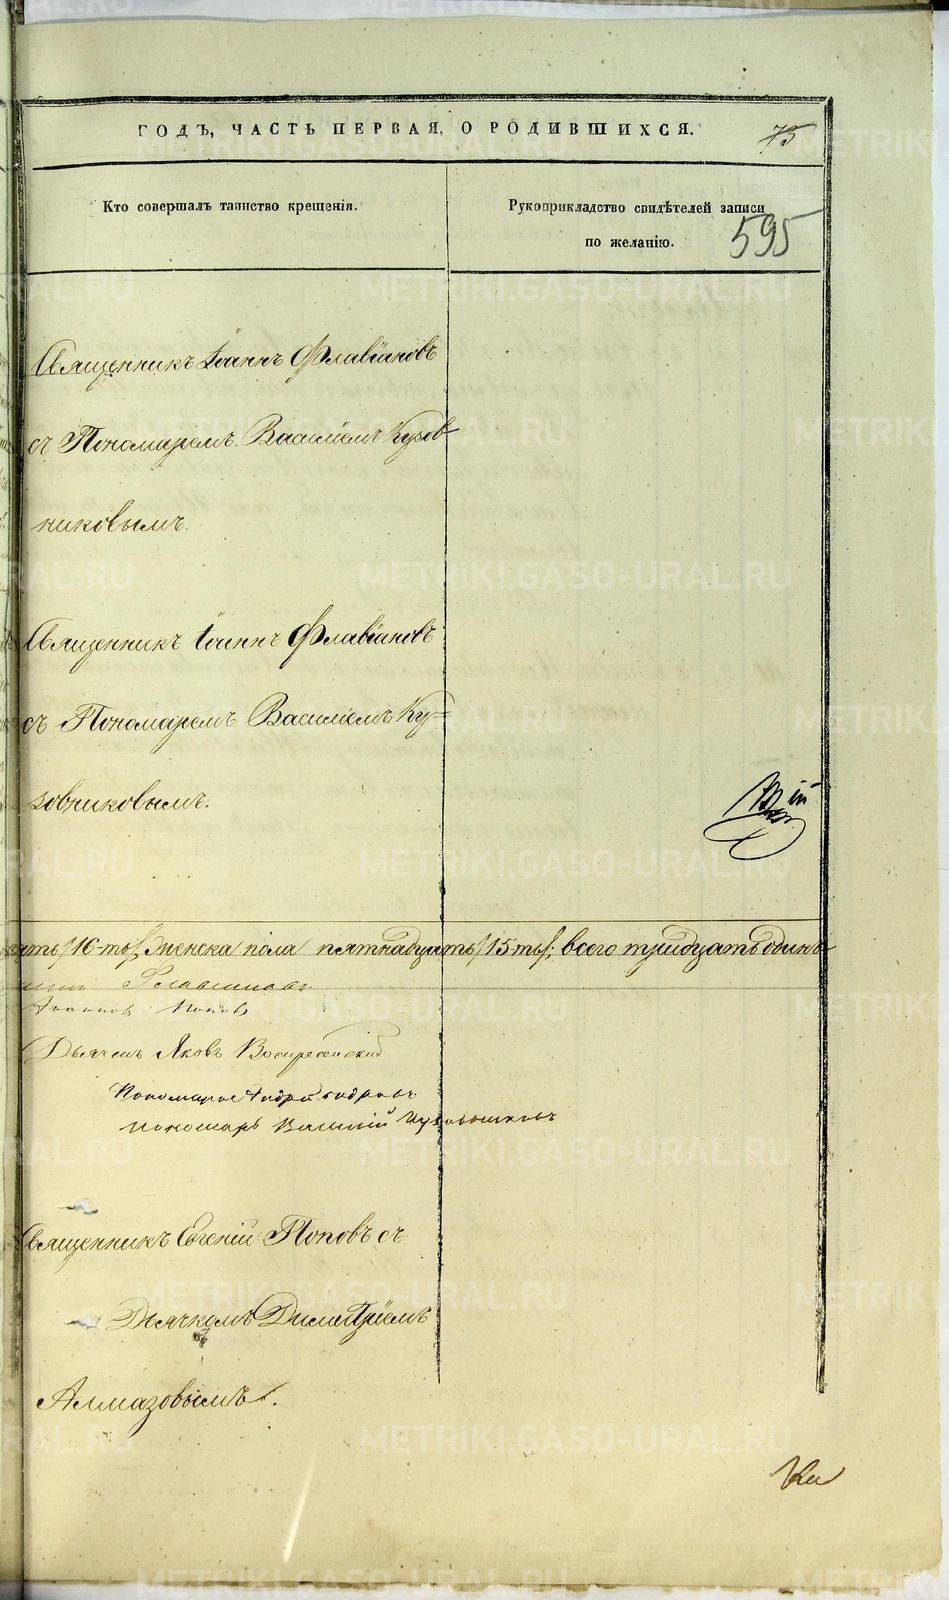 ГОДЪ, ЧАСТЬ ПЕРВАЯ, О РОДИВШИХСЯ.
75
Кто совершалъ таинство крещенія.
Рукоприкладство свидѣтелей записи
по желанію.
595
Священникъ Іоаннъ Флавіановъ
съ Пономаремъ Василіемъ Кузов
никовымъ.
Священникъ Іоаннъ Флавіановъ
съ Пономаремъ Василіемъ Ку=
зовниковымъ.
/16-ть/, Женска пола пятнадцать /15-ть/; всего тридцать одинъ
Флавіановъ
Поповъ
Дьячекъ Яковъ Воскресенскій
Пономарь Андрей
Пономарь Василій Кузовниковъ
Священникъ Евгеній Поповъ съ
Дьячкомъ Димитріемъ
Алмазовымъ.
METRIKI.GASO-URAL.RU